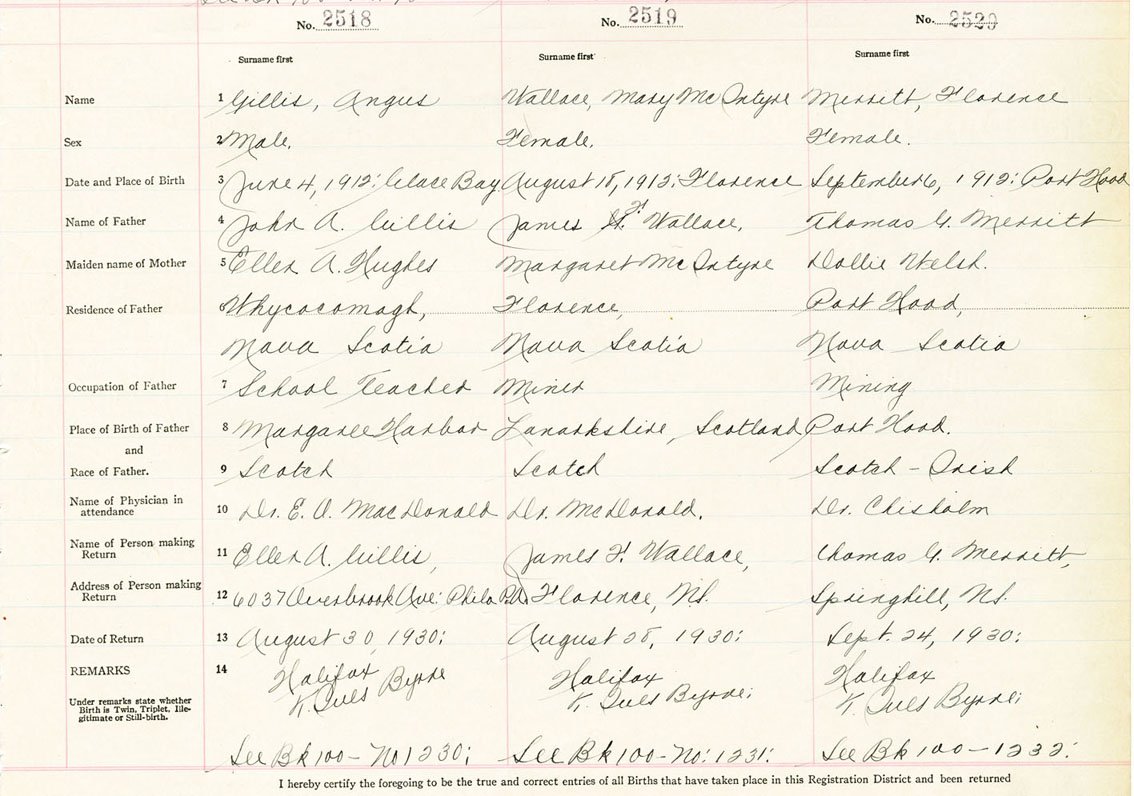 No. 2518 No. 2519 No. 2520
Surname first Surname first Surname first
Name 1 Gillis, Angus Wallace, Mary McIntyre Merritt, Florence
Sex 2 Male. Female. Female.
Date and Place of Birth 3 June 4, 1912: Glace Bay August 18, 1912: Florence September 6, 1912: Port Hood
Name of Father 4 John A. Gillis James F. Wallace, Thomas G. Merritt
Maiden name of Mother 5 Ellen A. Hughes Margaret McIntyre Dollie Welsh.
Residence of Father 6 Whycocomagh, Florence, Port Hood,
Nova Scotia Nova Scotia Nova Scotia
Occupation of Father 7 School Teacher Miner Mining
Place of Birth of Father 8 Margaree Harbor Lanarkshire, Scotland Port Hood.
and
Race of Father. 9 Scotch Scotch Scotch - Irish
Name of Physician in
attendance 10 Dr. E. O. MacDonald Dr. McDonald. Dr. Chisholm
Name of Person making
Return 11 Ellen A. Gillis, James F. Wallace, Thomas G. Merritt,
Address of Person making
Return 12 6037 Overbrook Ave: Phila Pa. Florence, N.S. Springhill, N.S.
Date of Return 13 August 30, 1930: August 28, 1930: Sept. 24, 1930:
REMARKS 14 Halifax Halifax Halifax
Under remarks state whether Byrne Byrne: Byrne:
Birth is Twin, Triplet, Ille-
gitimate or Still-birth.
See Bk 100 - No 1230; See Bk 100 - No: 1231: See Bk 100 - 1232:
I hereby certify the foregoing to be the true and correct entries of all Births that have taken place in this Registration District and been returned